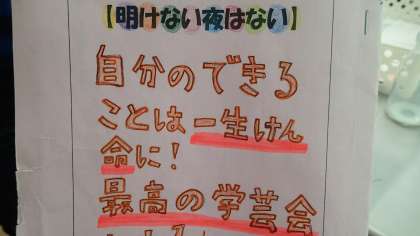 【明けない夜はない】
自分のできる
ことは一生けん
命に!
最高の学芸会